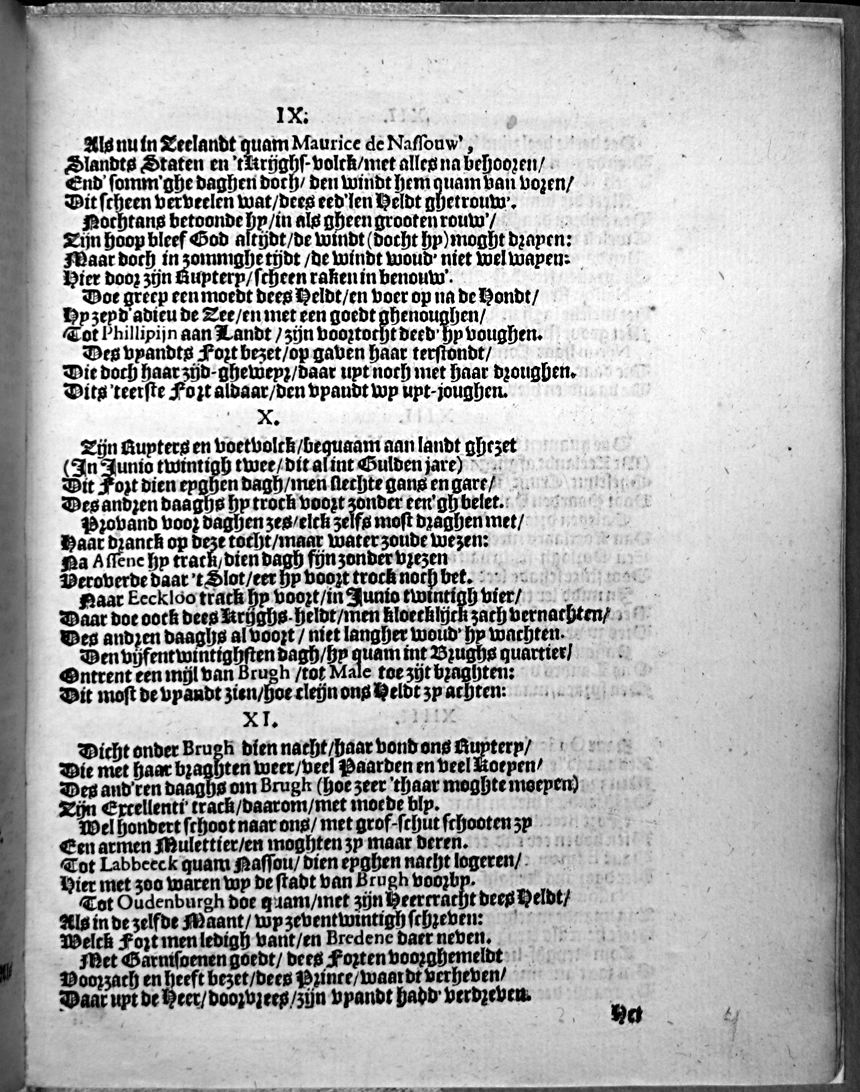 IX.
Als nu in Zeelandt quam Maurice de Nassouw',
Slandts Staten en 't krijghs-volck/met alles na behooren/
End' somm'ghe daghen doch/ den windt hem quam van voren/
Dit scheen verveelen wat/dees eed'len Heldt ghetrouw'.
Nochtans betoonde hy/in als gheen grooten rouw'/
Zijn hoop bleef God altijdt/de windt (docht hy) moght drayen:
Maar doch in zommighe tijdt /de windt woud' niet wel wayen:
Hier door zijn Ruytery/scheen raken in benouw'.
Doe greep een moedt dees Heldt/en voer op na de Hondt/
Hy zeyd' adieu de Zee/en met een goedt ghenoughen/
Tot Phillipijn aan Landt /zijn voortocht deed' hy voughen.
Des vyandts Fort bezet/op gaven haar terstondt/
Die doch haar zijd-gheweyr/daar uyt noch met haar droughen.
Dits 'teerste Fort aldaar/den vyandt wy uyt-joughen.
X.
Zijn Ruyters en voetvolck/bequaam aan landt ghezet
(In Junio twintigh twee/dit al int Gulden jare)
Dit Fort dien eyghen dagh/men slechte gans en gare/
Des andren daaghs hy trock voort zonder een'gh belet.
Provand voor daghen zes/elck zelfs most draghen met/
Haar dranck op deze tocht/maar water zoude wezen:
Na Assene hy track/dien dagh fijn zonder vrezen
Veroverde daar 't Slot/eer hy voort trock noch bet.
Naar Eeckloo track hy voort/in Junio twintigh vier/
Daar doe oock dees Krijghs-heldt/men kloecklijck zach vernachten/
Des andren daaghs al voort / niet langher woud' hy wachten.
Den vijfentwintighsten dagh/hy quam int Brughs quartier/
Ontrent een mijl van Brugh /tot Male toe zijt braghten:
Dit most de vyandt zien/hoe cleijn ons Heldt zy achten:
XI.
Dicht onder Brugh dien nacht/haar vond ons Ruytery/
Die met haar braghten weer/veel Paarden en veel Koeyen/
Des and'ren daaghs om Brugh (hoe zeer 'thaar moghte moeyen)
Zijn Excellenti' track/daarom/met moede bly.
Wel hondert schoot naar ons/ met grof-schut schooten zy
Een armen Mulettier/en moghten zy maar deren.
Tot Labbeeck quam Nassou/ dien eyghen nacht logeren/
Hier met zoo waren wy de stadt van Brugh voorby.
Tot Oudenburgh doe quam/met zijn Heercracht dees Heldt/
Als in de zelfde Maant/ wy zeventwintigh schreven:
Welck Fort men ledigh vant/en Bredene daer neven.
Met Garnisoenen goedt/ dees Forten voorghemeldt
Voorzach en heeft bezet/dees Prince/waardt verheven/
Daar uyt de Heer/doorvrees/zijn vyandt hadd' verdreven.
Het